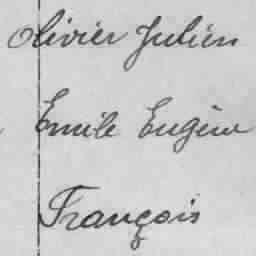 Olivier Julien
Emile Eugène
François